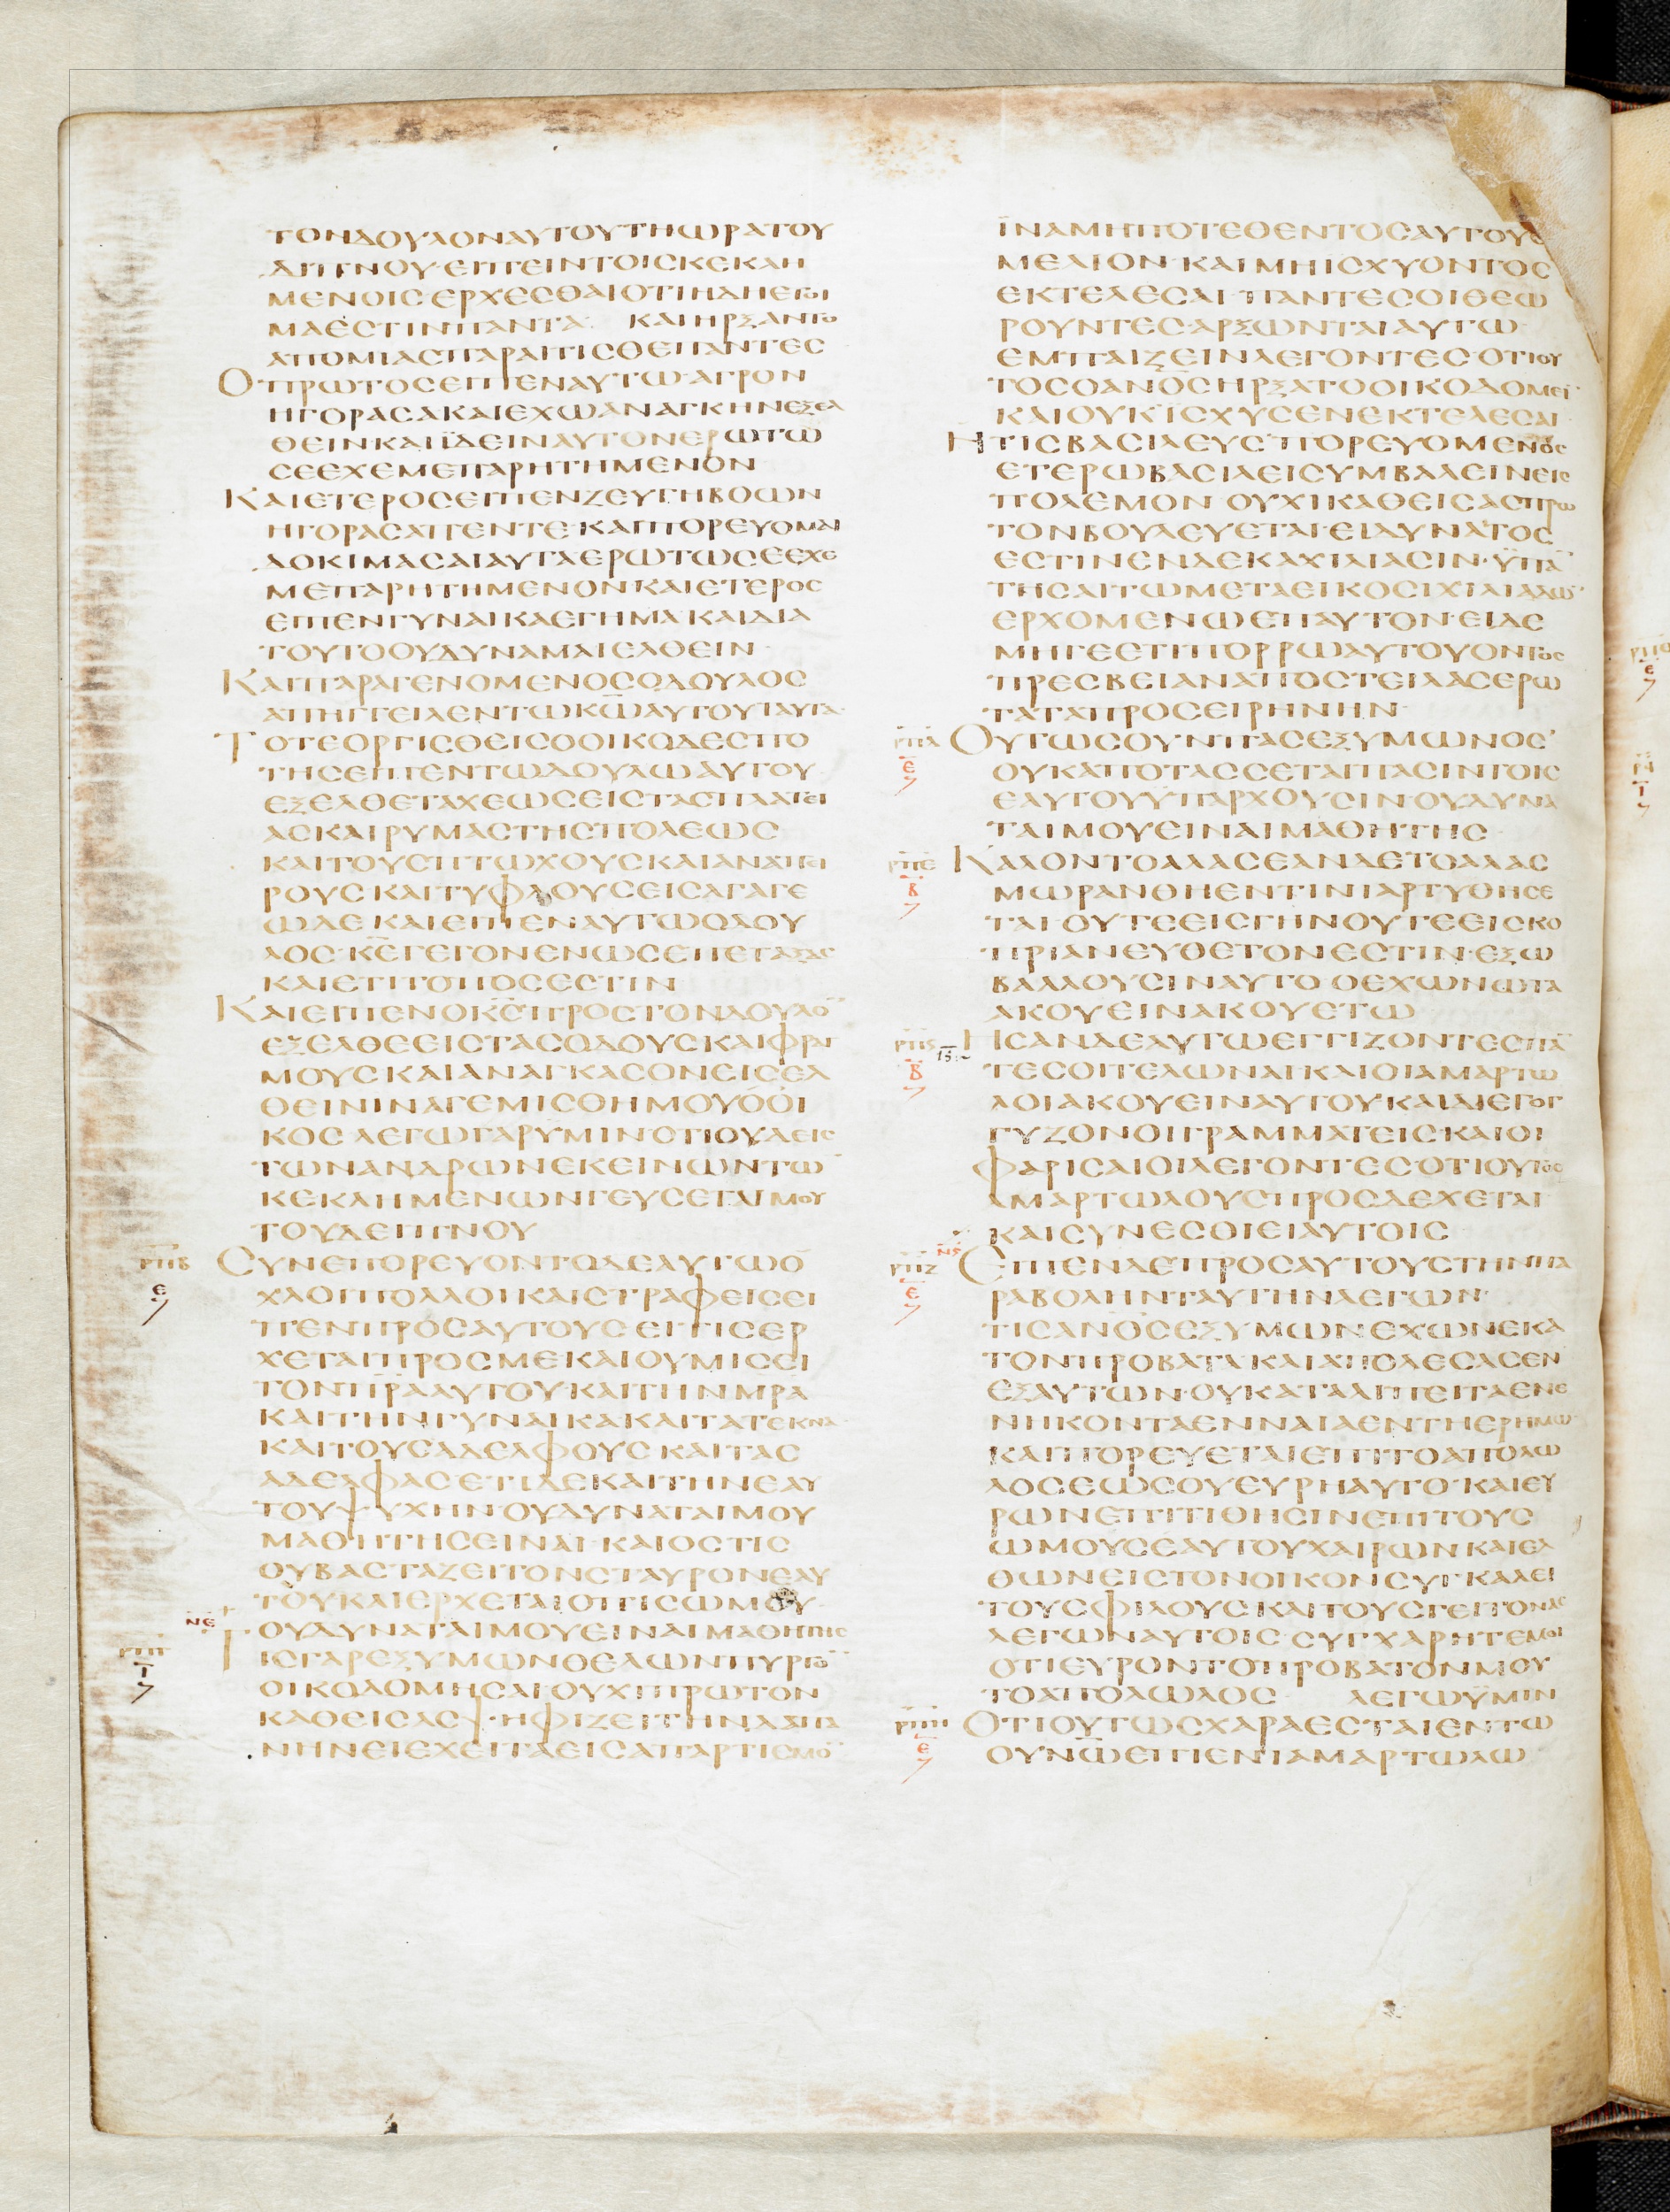 ΤΟΝΔΟΥΛΟΝΑΥΤΟΥΤΗΩΡΑΤΟΥ
ΔΙΠΝΟΥ·ΕΙΠΕΙΝΤΟΙΣΚΕΚΛΗ
ΜΕΝΟΙΣ·ΕΡΧΕΣΘΑΙΟΤΙΗΔΗΕΤΟΙ
ΜΑΕΣΤΙΝΠΑΝΤΑ· ΚΑΙΗΡΞΑΝΤΟ
ΑΠΟΜΙΑΣΠΑΡΑΙΤΙΣΘΕΠΑΝΤΕΣ
ΟΠΡΩΤΟΣΕΙΠΕΝΑΥΤΩ·ΑΓΡΟΝ
ΗΓΟΡΑΣΑΚΑΙΕΧΩΑΝΑΓΚΗΝΕΞΕΛ
ΘΕΙΝΚΑΙΪΔΕΙΝΑΥΤΟΝΕΡΩΤΩ
ΣΕΕΧΕΜΕΠΑΡΗΤΗΜΕΝΟΝ
ΚΑΙΕΤΕΡΟΣΕΙΠΕΝΖΕΥΓΗΒΟΩΝ
ΗΓΟΡΑΣΑΠΕΝΤΕ·ΚΑΙΠΟΡΕΥΟΜΑΙ
ΔΟΚΙΜΑΣΑΙΑΥΤΑΕΡΩΤΩΣΕΕΧΕ
ΜΕΠΑΡΗΤΗΜΕΝΟΝ·ΚΑΙΕΤΕΡΟΣ
ΕΙΠΕΝΓΥΝΑΙΚΑΕΓΗΜΑΚΑΙΔΙΑ
ΤΟΥΤΟΟΥΔΥΝΑΜΑΙΕΛΘΕΙΝ
ΚΑΙΠΑΡΑΓΕΝΟΜΕΝΟΣΟΔΟΥΛΟΣ
ΑΠΗΓΓΕΙΛΕΝΤΩΚΩ̅ΑΥΤΟΥΤΑΥΤΑ·
ΤΟΤΕΟΡΓΙΣΘΕΙΣΟΟΙΚΟΔΕΣΠΟ
ΤΗΣΕΙΠΕΝΤΩΔΟΥΛΩΑΥΤΟΥ
ΕΞΕΛΘΕΤΑΧΕΩΣΕΙΣΤΑΣΠΛΑΤΕΙ
ΑΣΚΑΙΡΥΜΑΣΤΗΣΠΟΛΕΩΣ
ΚΑΙΤΟΥΣΠΤΩΧΟΥΣΚΑΙΑΝΑΠΕΙ
ΡΟΥΣΚΑΙΤΥΦΛΟΥΣΕΙΣΑΓΑΓΕ
ΩΔΕ ΚΑΙΕΙΠΕΝΑΥΤΩΟΔΟΥ
ΛΟΣ·ΚΕ̅ΓΕΓΟΝΕΝΩΣΕΠΕΤΑΞΑΣ
ΚΑΙΕΤΙΤΟΠΟΣΕΣΤΙΝ
ΚΑΙΕΙΠΕΝΟΚΣ̅ΠΡΟΣΤΟΝΔΟΥΛΟ̅
ΕΞΕΛΘΕΕΙΣΤΑΣΟΔΟΥΣΚΑΙΦΡΑΓ
ΜΟΥΣΚΑΙΑΝΑΓΚΑΣΟΝΕΙΣΕΛ
ΘΕΙΝΙΝΑΓΕΜΙΣΘΗΜΟΥΟΟΙ
ΚΟΣ·ΛΕΓΩΓΑΡΫΜΙΝΟΤΙΟΥΔΕΙΣ
ΤΩΝΑΝΔΡΩΝΕΚΕΙΝΩΝΤΩ̅
ΚΕΚΛΗΜΕΝΩΝΓΕΥΣΕΤΑΙΜΟΥ
ΤΟΥΔΕΙΠΝΟΥ
ΡΠΒ ΣΥΝΕΠΟΡΕΥΟΝΤΟΔΕΑΥΤΩΟ
Ε ΧΛΟΙΠΟΛΛΟΙΚΑΙΣΤΡΑΦΕΙΣΕΙ
ΠΕΝΠΡΟΣΑΥΤΟΥΣ ΕΙΤΙΣΕΡ
ΧΕΤΑΙΠΡΟΣΜΕ·ΚΑΙΟΥΜΙΣΕΙ
ΤΟΝΠΡΑ̅ΑΥΤΟΥ·ΚΑΙΤΗΝΜΡΑ̅
ΚΑΙΤΗΝΓΥΝΑΙΚΑΚΑΙΤΑΤΕΚΝΑ·
ΚΑΙΤΟΥΣΑΔΕΛΦΟΥΣ ΚΑΙΤΑΣ
ΑΔΕΛΦΑΣΕΤΙΔΕΚΑΙΤΗΝΕΑΥ
ΤΟΥΨΥΧΗΝ·ΟΥΔΥΝΑΤΑΙΜΟΥ
ΜΑΘΗΤΗΣΕΙΝΑΙ·ΚΑΙΟΣΤΙΣ
ΟΥΒΑΣΤΑΖΕΙΤΟΝΣΤΑΥΡΟΝΕΑΥ
ΤΟΥΚΑΙΕΡΧΕΤΑΙΟΠΙΣΩΜΟΥ·
ΝΕ ΟΥΔΥΝΑΤΑΙΜΟΥΕΙΝΑΙΜΑΘΗΤΗΣ
ΡΠΓ ΤΙΣΓΑΡΕΞΥΜΩΝΘΕΛΩΝΠΥΡΓΟ̅
Ι ΟΙΚΟΔΟΜΗΣΑΙ·ΟΥΧΙΠΡΩΤΟΝ
ΚΑΘΕΙΣΑΣΨΗΦΙΖΕΙΤΗΝΔΑΠΑ
ΝΗΝΕΙΕΧΕΙΤΑΕΙΣΑΠΑΡΤΙΣΜΟ̅
ΪΝΑΜΗΠΟΤΕΘΕΝΤΟΣΑΥΤΟΥΘ
ΜΕΛΙΟΝ·ΚΑΙΜΗΙΣΧΥΟΝΤΟΣ
ΕΚΤΕΛΕΣΑΙ·ΠΑΝΤΕΣΟΙΘΕΩ
ΡΟΥΝΤΕΣ·ΑΡΞΩΝΤΑΙΑΥΤΩ
ΕΜΠΑΙΖΕΙΝΛΕΓΟΝΤΕΣ·ΟΤΙΟΥ
ΤΟΣΟΑΝΟΣ̅ΗΡΞΑΤΟΟΙΚΟΔΟΜΕΙ̅
ΚΑΙΟΥΚΪΣΧΥΣΕΝΕΚΤΕΛΕΣΑΙ
ΗΤΙΣΒΑΣΙΛΕΥΣΠΟΡΕΥΟΜΕΝΟΣ
ΕΤΕΡΩΒΑΣΙΛΕΙΣΥΜΒΑΛΕΙΝΕΙΣ
ΠΟΛΕΜΟΝ·ΟΥΧΙΚΑΘΕΙΣΑΣΠΡΩ
ΤΟΝΒΟΥΛΕΥΕΤΑΙ·ΕΙΔΥΝΑΤΟΣ
ΕΣΤΙΝΕΝΔΕΚΑΧΙΛΙΑΣΙΝ·ΫΠΑ̅
ΤΗΣΑΙΤΩΜΕΤΑΕΙΚΟΣΙΧΙΛΙΑΔΩ̅·
ΕΡΧΟΜΕΝΩΕΠΑΥΤΟΝ·ΕΙΔΕ
ΜΗΓΕΕΤΙΠΟΡΡΩΑΥΤΟΥΟΝΤΟΣ
ΠΡΕΣΒΕΙΑΝΑΠΟΣΤΕΙΛΑΣΕΡΩ
ΤΑΤΑΠΡΟΣΕΙΡΗΝΗΝ·
ΡΠΔ ΟΥΤΩΣΟΥΝΠΑΣΕΞΥΜΩΝΟΣ
Ε ΟΥΚΑΠΟΤΑΣΣΕΤΑΙΠΑΣΙΝΤΟΙΣ
ΕΑΥΤΟΥΫΠΑΡΧΟΥΣΙΝ·ΟΥΔΥΝΑ
ΤΑΙΜΟΥΕΙΝΑΙΜΑΘΗΤΗΣ·
ΡΠΕ ΚΑΛΟΝΤΟΑΛΑΣΕΑΝΔΕΤΟΑΛΑΣ
Β ΜΩΡΑΝΘΗΕΝΤΙΝΙΑΡΤΥΘΗΣΕ
ΤΑΙ·ΟΥΤΕΕΙΣΓΗΝΟΥΤΕΕΙΣΚΟ
ΠΡΙΑΝΕΥΘΕΤΟΝΕΣΤΙΝ·ΕΞΩ
ΒΑΛΛΟΥΣΙΝΑΥΤΟ·ΟΕΧΩΝΩΤΑ
ΑΚΟΥΕΙΝΑΚΟΥΕΤΩ
ΡΠϚ ΗΣΑΝΔΕΑΥΤΩΕΓΓΙΖΟΝΤΕΣΠΑ̅
Β ΤΕΣΟΙΤΕΛΩΝΑΙΚΑΙΟΙΑΜΑΡΤΩ
ΛΟΙΑΚΟΥΕΙΝΑΥΤΟΥΚΑΙΔΙΕΓΟΓ
ΓΥΖΟΝΟΙΓΡΑΜΜΑΤΕΙΣ·ΚΑΙΟΙ
ΦΑΡΙΣΑΙΟΙΛΕΓΟΝΤΕΣ·ΟΤΙΟΥΤΟΣ
ΑΜΑΡΤΩΛΟΥΣΠΡΟΣΔΕΧΕΤΑΙ
ΚΑΙΣΥΝΕΣΘΙΕΙΑΥΤΟΙΣ
ΝϚ
ΡΠΖ ΕΙΠΕΝΔΕΠΡΟΣΑΥΤΟΥΣΤΗΝΠΑ
Ε ΡΑΒΟΛΗΝΤΑΥΤΗΝΛΕΓΩΝ·
ΤΙΣΑΝΟΣ̅ΕΞΥΜΩΝΕΧΩΝΕΚΑ
ΤΟΝΠΡΟΒΑΤΑ·ΚΑΙΑΠΟΛΕΣΑΣΕΝ
ΕΞΑΥΤΩΝ·ΟΥΚΑΤΑΛΙΠΕΙΤΑΕΝΕ
ΝΗΚΟΝΤΑΕΝΝΑΙΑΕΝΤΗΕΡΗΜΩ
ΚΑΙΠΟΡΕΥΕΤΑΙΕΠΙΤΟΑΠΟΛΩ
ΛΟΣΕΩΣΟΥΕΥΡΗΑΥΤΟ·ΚΑΙΕΥ
ΡΩΝΕΠΙΤΙΘΗΣΙΝΕΠΙΤΟΥΣ
ΩΜΟΥΣΕΑΥΤΟΥΧΑΙΡΩΝΚΑΙΕΛ
ΘΩΝΕΙΣΤΟΝΟΙΚΟΝΣΥΓΚΑΛΕΙ
ΤΟΥΣΦΙΛΟΥΣΚΑΙΤΟΥΣΓΕΙΤΟΝΑΣ
ΛΕΓΩΝΑΥΤΟΙΣ·ΣΥΓΧΑΡΗΤΕΜΟΙ
ΟΤΙΕΥΡΟΝΤΟΠΡΟΒΑΤΟΝΜΟΥ
ΤΟΑΠΟΛΩΛΟΣ ΛΕΓΩΫΜΙΝ
ΡΠΗ ΟΤΙΟΥΤΩΣΧΑΡΑΕΣΤΑΙΕΝΤΩ
Ε ΟΥΝΩ̅ΕΠΙΕΝΙΑΜΑΡΤΩΛΩ